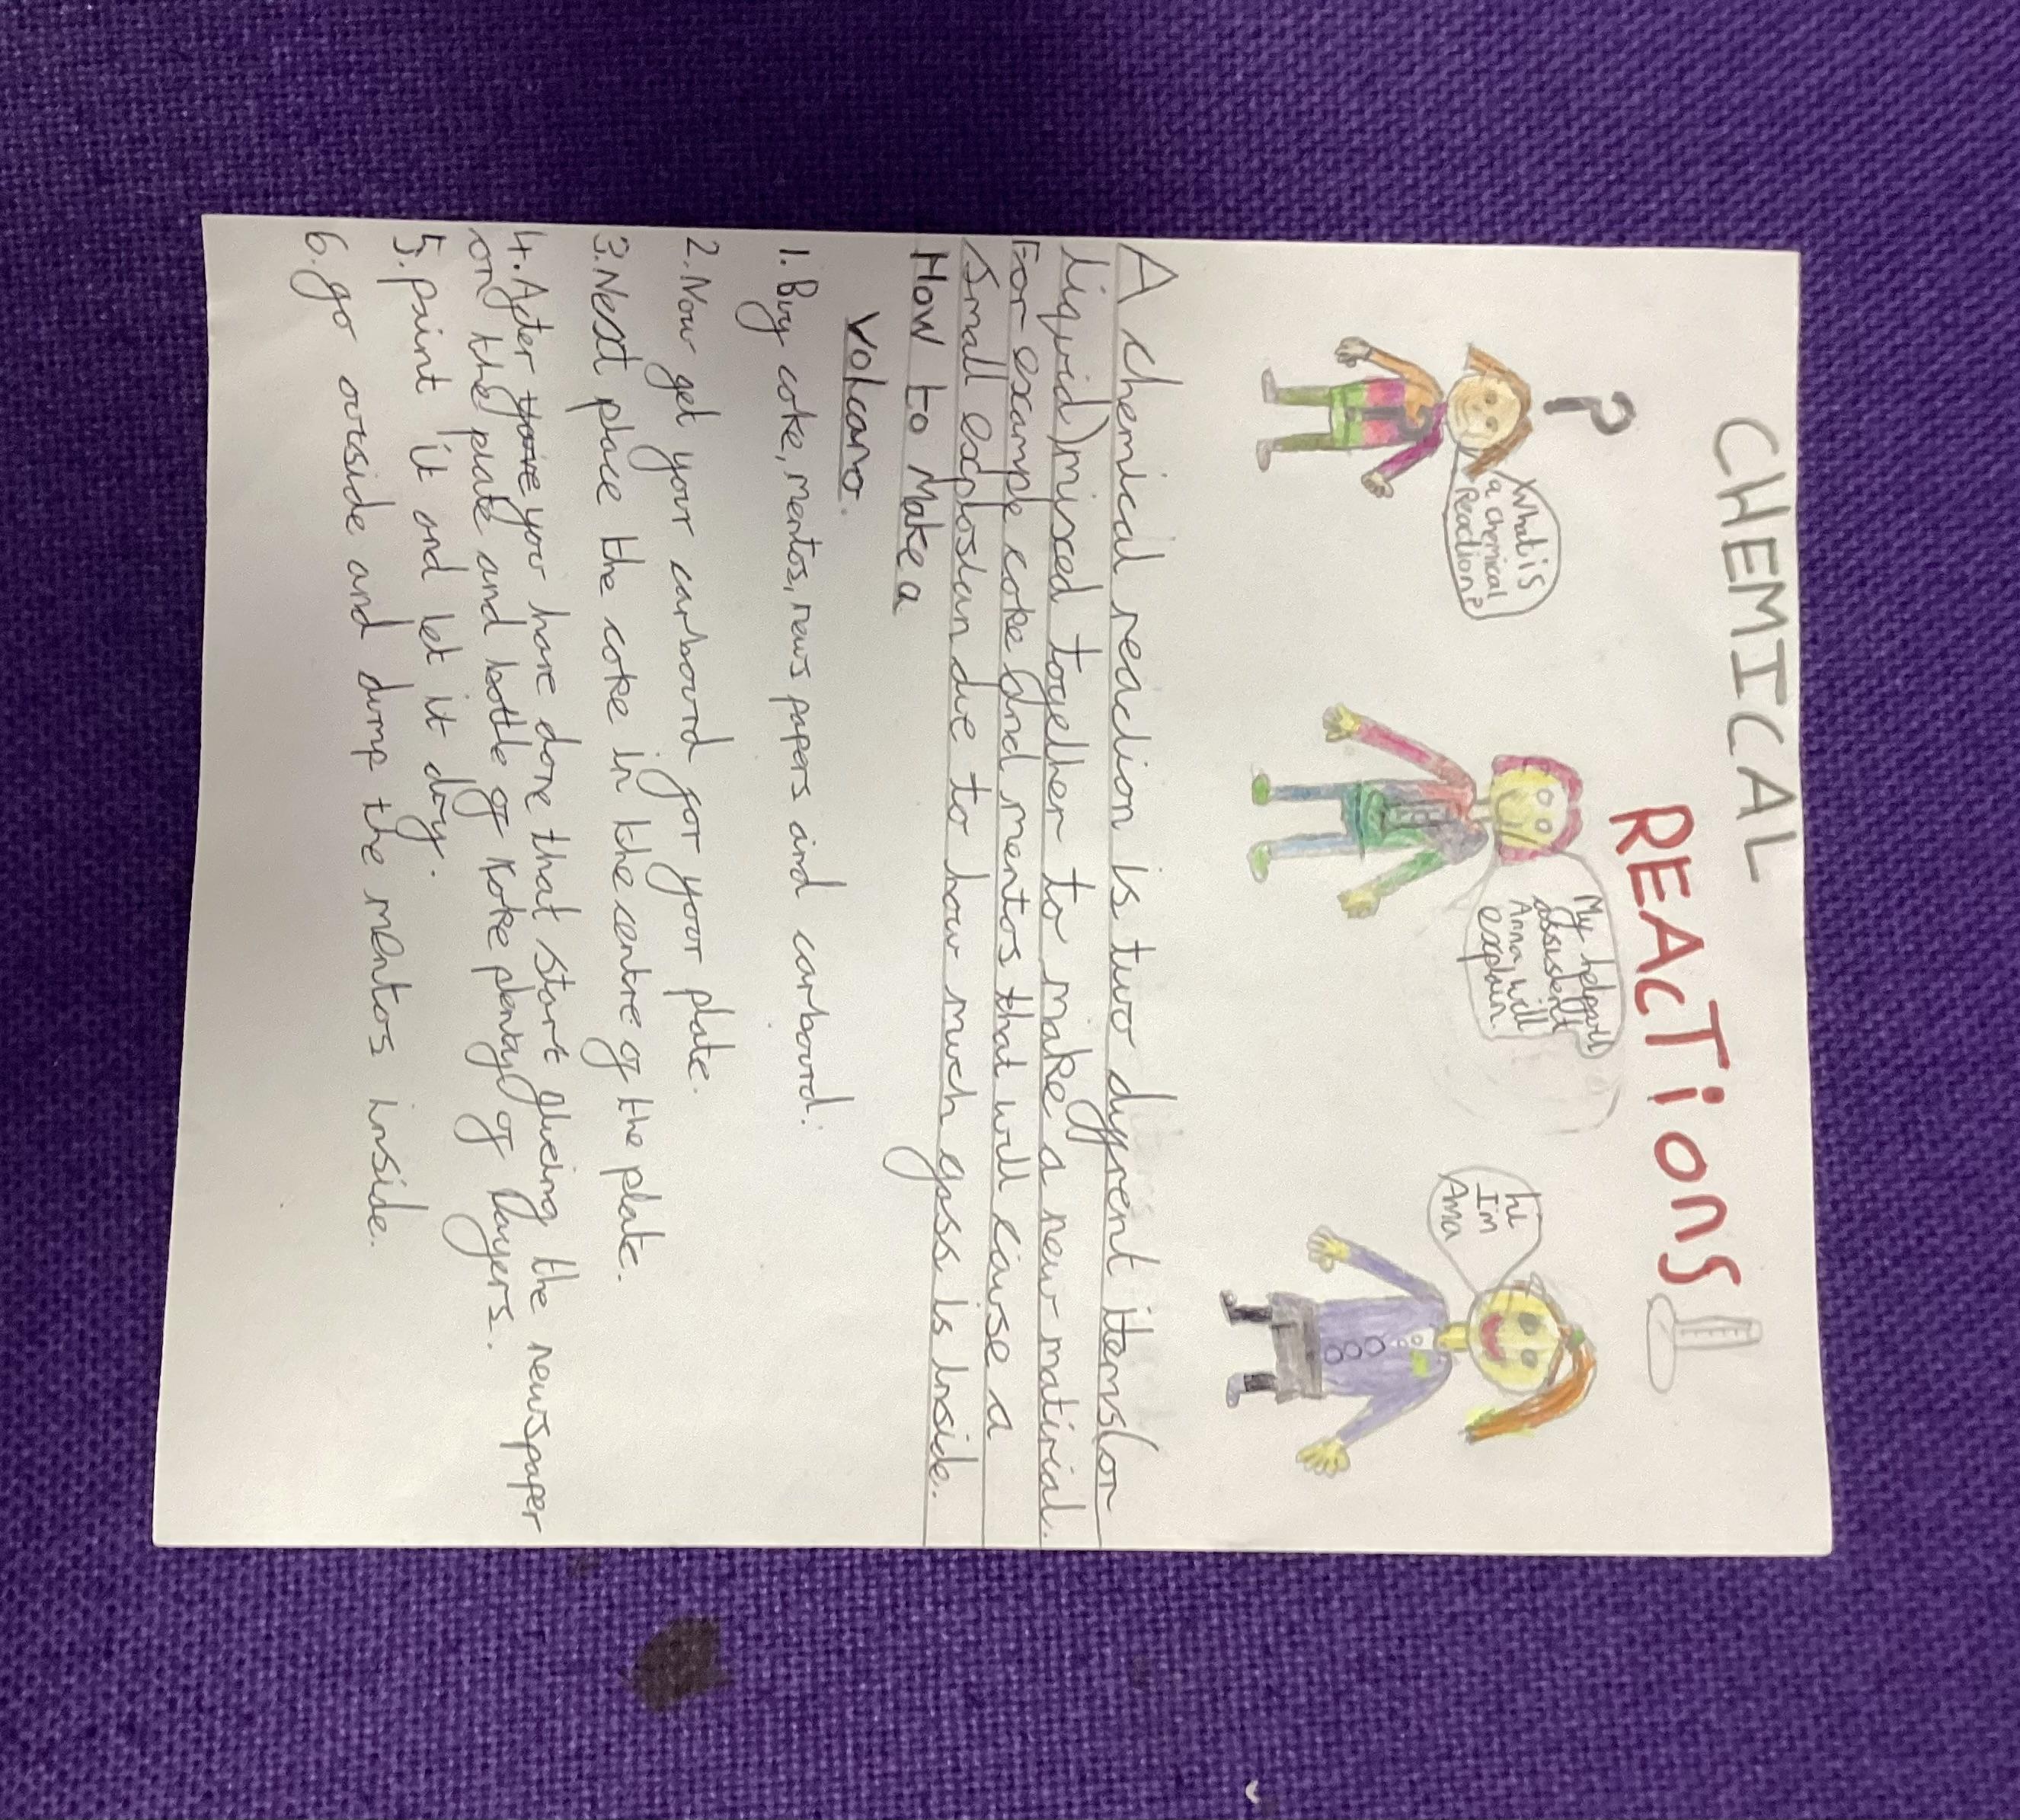 CHEMICAL
REACTiOnS
?
What is
a chemical
Reaction?
My helpful
assisent
Anna will
explain.
hi
Im
Ama
A chemical reaction is two diffrent items(or
liquid) mixed together to make a new matirial.
For example coke and mentos that will cause a
small exploslan due to how much gass is inside.
How to Make a
volcano.
1. Buy coke, mentos, news papers and carbourd.
2. Now get your carbourd for your plate.
3. Next place the coke in the centre of the plate.
4. After you have done that start glueing the newspaper
on the plate and bottle of Koke plenty of layers.
5. paint it and let it dry.
6. go outside and dump the mentos inside.